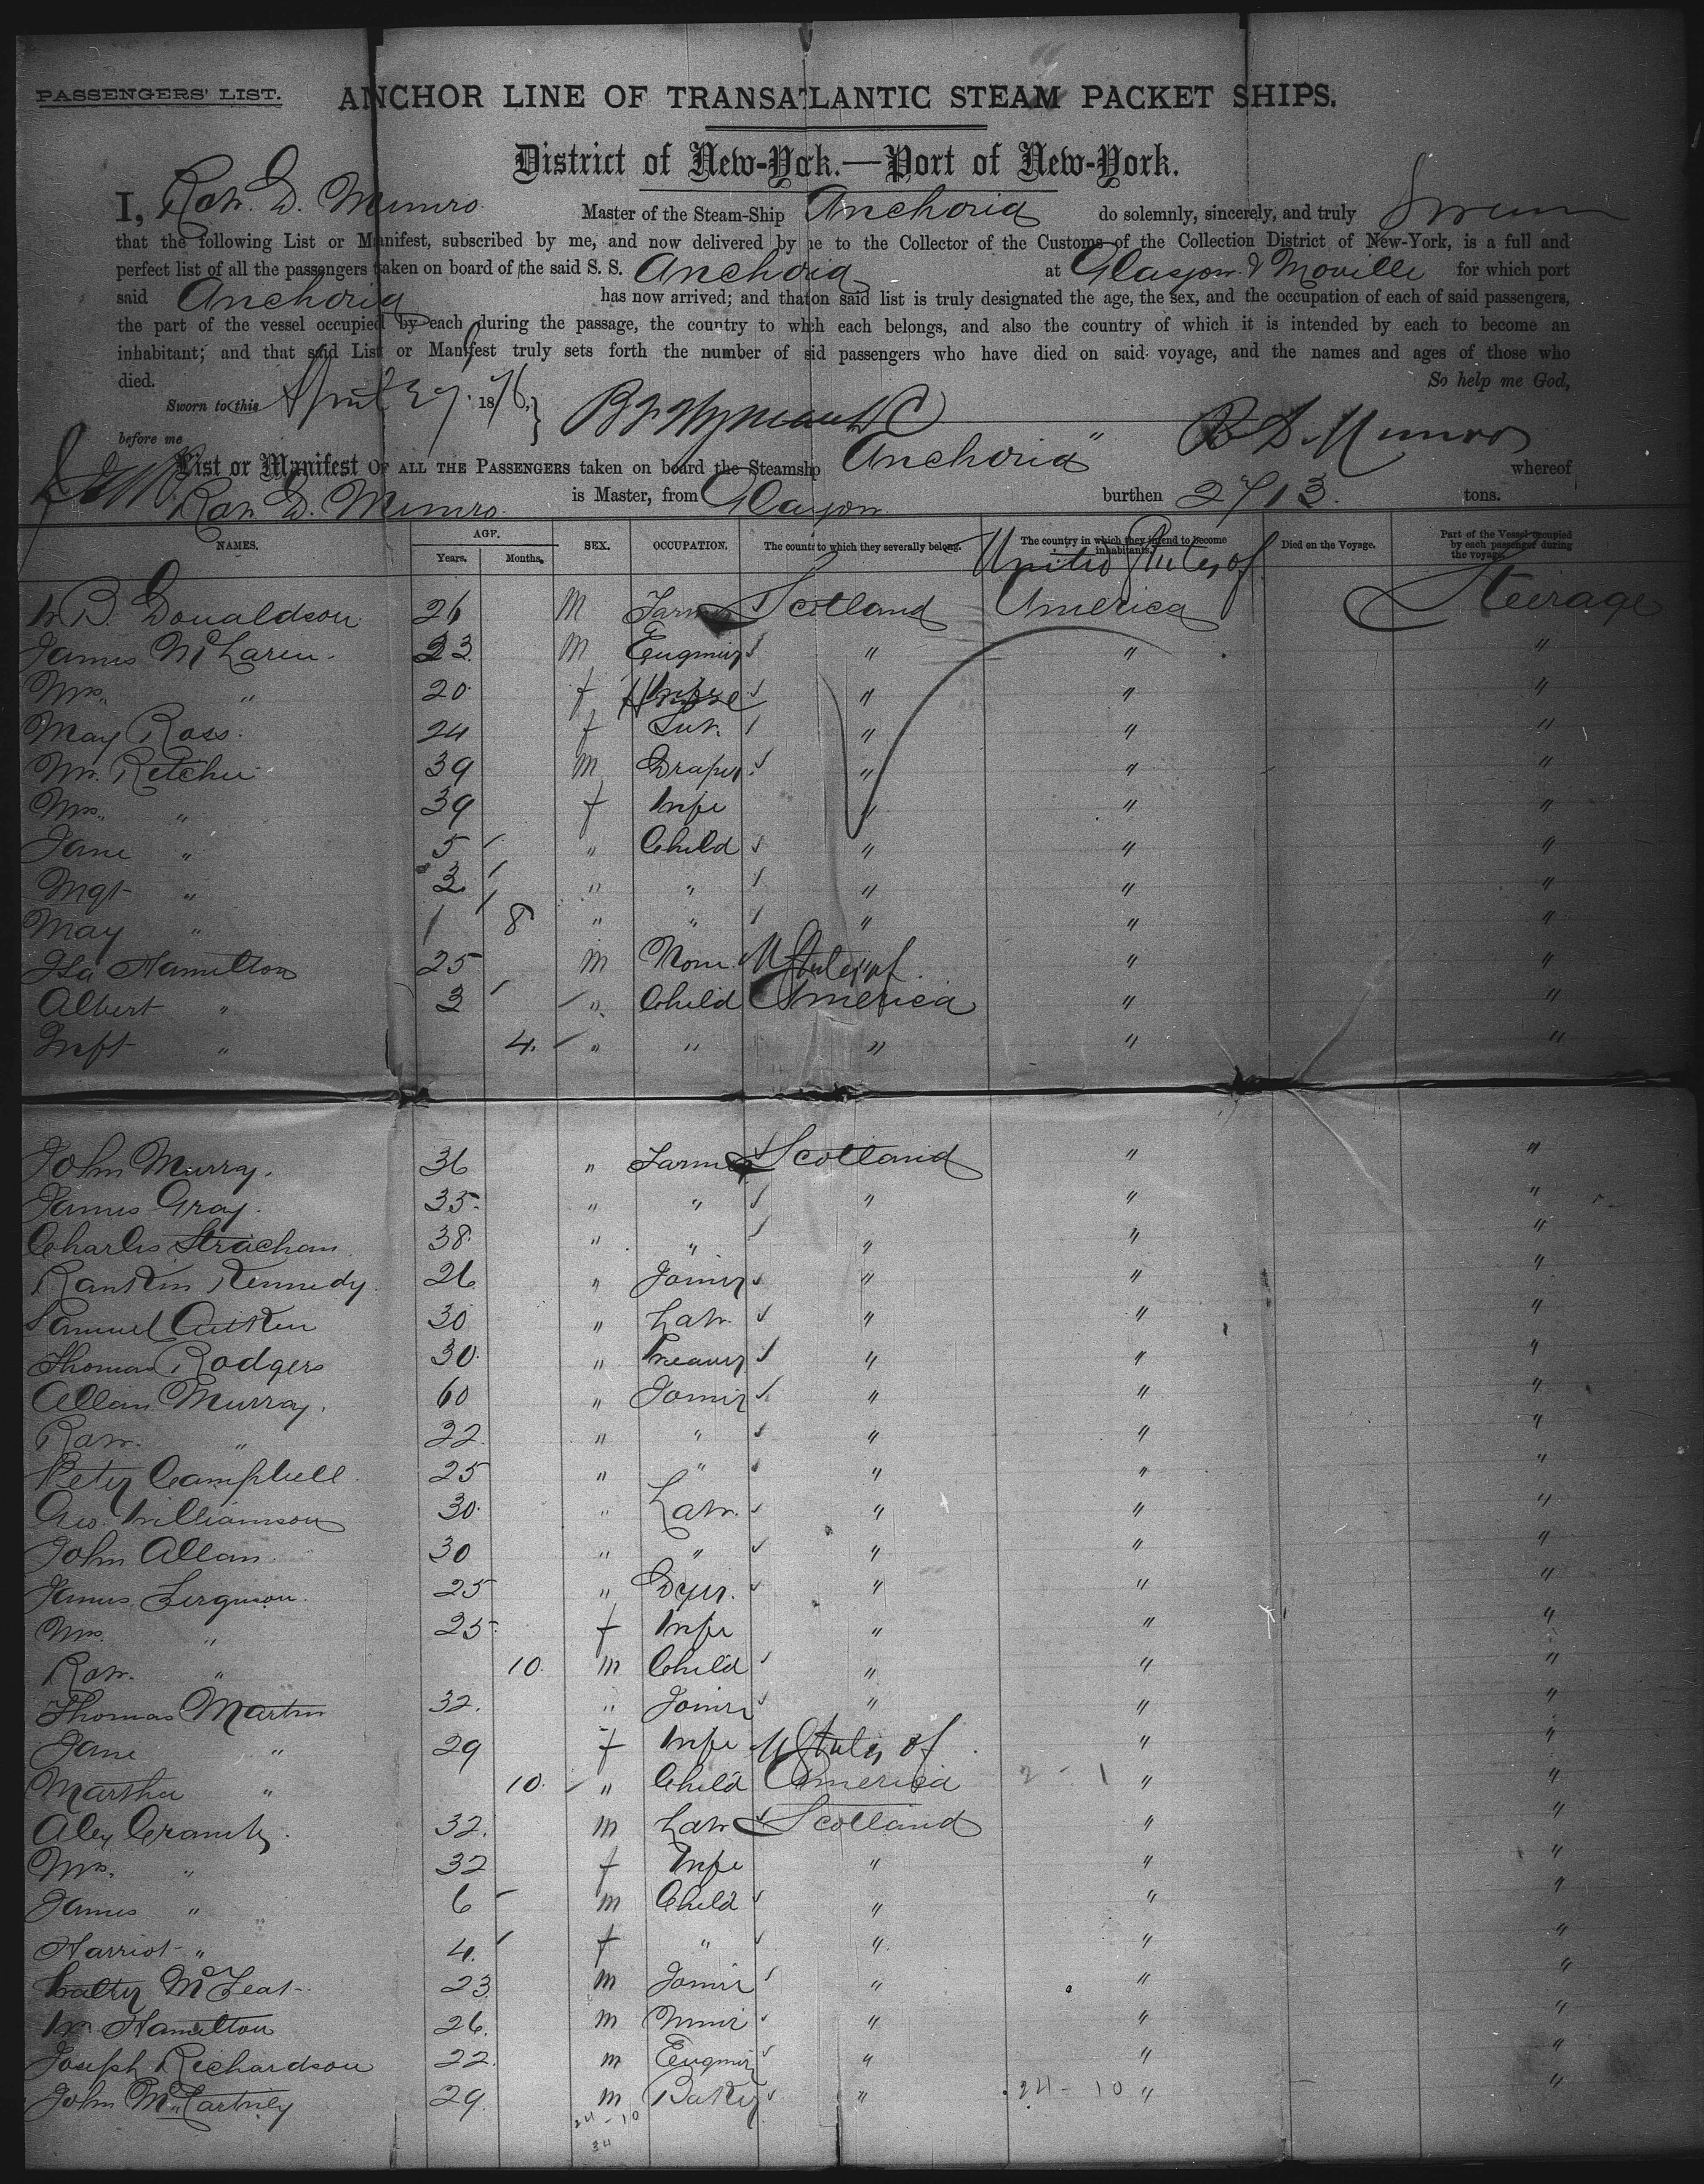 PASSENGERS' LIST.
ANCHOR LINE OF TRANSATLANTIC STEAM PACKET SHIPS.
District of New-York.—Port of New-York.
I, Rob. D. Munro Master of the Steam-Ship Anchoria do solemnly, sincerely, and truly Swear
that the following List or Manifest, subscribed by me, and now delivered by me to the Collector of the Customs of the Collection District of New-York, is a full and
perfect list of all the passengers taken on board of the said S. S. Anchoria at Glasgow & Moville for which port
said Anchoria has now arrived; and that on said list is truly designated the age, the sex, and the occupation of each of said passengers,
the part of the vessel occupied by each during the passage, the country to which each belongs, and also the country of which it is intended by each to become an
inhabitant; and that said List or Manifest truly sets forth the number of said passengers who have died on said voyage, and the names and ages of those who
died. So help me God,
Sworn to this April 29 1876,
before me R D Munro
List or Manifest OF ALL THE PASSENGERS taken on board the Steamship Anchoria" whereof
Rob. D. Munro is Master, from Glasgow burthen 2713. tons.
NAMES. AGE. Years. Months. SEX. OCCUPATION. The country to which they severally belong. The country in which they intend to become inhabitants. Died on the Voyage. Part of the Vessel occupied by each passenger during the voyage.
United States of
W B. Donaldson 26 M Farmer Scotland America Steerage
James McLaren. 23 M Enginer " " "
Mrs. " 20 f Wife " " "
May Ross. 24 f Sert. " " "
Wm. Retchie 39 M Draper. " " "
Mrs. " 39 f Wife " " "
Jane " 5 " Child " " "
Mgt " 3 " " " " "
May " 1 8 " " " " "
Isa Hamilton 25 M None U States of " "
Albert " 3 " Child America " "
Inft " 4. " " " " "
John Murray. 36 " Farmer Scotland " "
James Gray. 35. " " " " "
Charles Strachan 38. " " " " "
Rankin Kennedy 26 " Joiner " " "
Samuel Aitken 30 " Lab. " " "
Thomas Rodgers 30. " Weaver " " "
Allan Murray. 60 " Joiner " " "
Rob. " 22. " " " " "
Peter Campbell. 25 " " " " "
Geo. Williamson 30. " Lab. " " "
John Allan. 30 " " " " "
James Ferguson. 25 " Dyer. " " "
Mrs. " 25. f Wife " " "
Rob. " 10. m Child " " "
Thomas Martin 32. " Joiner " " "
Jane " 29 f Wife U States of "  "
Martha " 10. " Child America 2 - 1 " "
Alex 32. m Lab Scotland " "
Mrs. " 32 f Wife " " "
James " 6 m Child " " "
Harriot " 4. f " " " "
Walter 23. m Joiner " " "
Wm Hamilton 26. m Miner " " "
Joseph Richardson 22. m Enginer " " "
John McCartney 29. m Baker " 24 - 10 " "
24 - 10
34